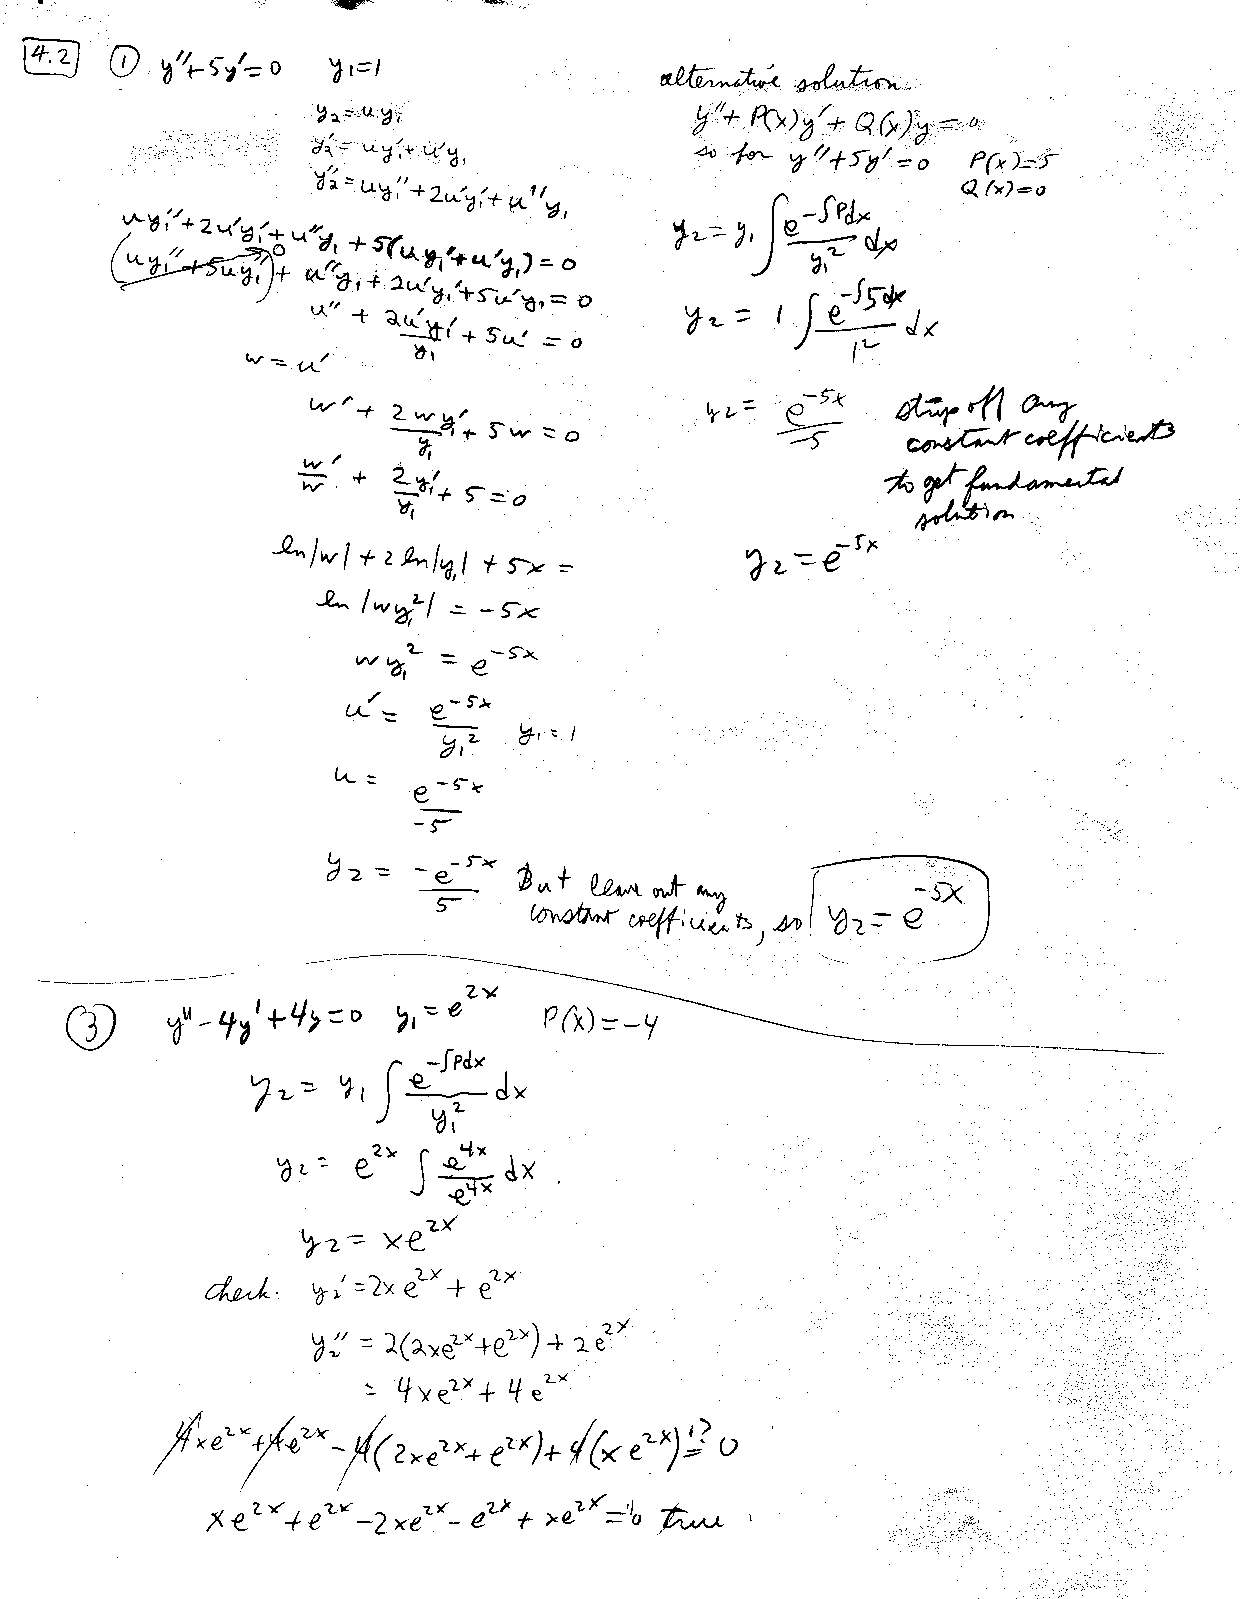 4.2 ① y''+5y'=0 y₁=1
y₂=uy₁
y₂'=uy₁'+u'y₁
y₂''=uy₁''+2u'y₁'+u''y₁
uy₁''+2u'y₁'+u''y₁+5(uy₁'+u'y₁)=0
(uy₁''+5uy₁')→0 + u''y₁+2u'y₁'+5u'y₁=0
u''+2u'y₁'/y₁+5u'=0
w=u'
w'+2wy₁'/y₁+5w=0
w'/w+2y₁'/y₁+5=0
ln|w|+2ln|y₁|+5x=
ln|wy₁²|=-5x
wy₁²=e^{-5x}
u'=e^{-5x}/y₁² y₁=1
u=e^{-5x}/-5
y₂=-e^{-5x}/5 But leave out any
constant coefficients, so y₂=e^{-5x}
alternative solution
y''+P(x)y'+Q(x)y=0
so for y''+5y'=0 P(x)=5
Q(x)=0
y₂=y₁∫e^{-∫Pdx}/y₁² dx
y₂=1∫e^{-∫5dx}/1² dx
y₂=e^{-5x}/-5 strip off any
constant coefficients
to get fundamental
solution
y₂=e^{-5x}
③ y''-4y'+4y=0 y₁=e^{2x} P(x)=-4
y₂=y₁∫e^{-∫Pdx}/y₁² dx
y₂=e^{2x}∫e^{4x}/e^{4x} dx
y₂=xe^{2x}
check. y₂'=2xe^{2x}+e^{2x}
y₂''=2(2xe^{2x}+e^{2x})+2e^{2x}
=4xe^{2x}+4e^{2x}
4xe^{2x}+4e^{2x}-4(2xe^{2x}+e^{2x})+4(xe^{2x})=?0
xe^{2x}+e^{2x}-2xe^{2x}-e^{2x}+xe^{2x}=0 true